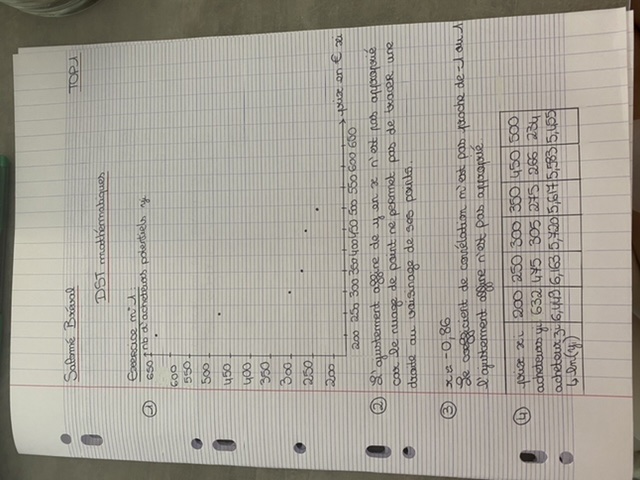 TOP1
DST mathématiques
Exercice n°1
① nb d'acheteurs potentiels yi
650
600
550
500
450
400
350
300
250
200
200 250 300 350 400 450 500 550 600 650
prix en € xi
② L'ajustement affine de y en x n'est pas approprié
car le nuage de point ne permet pas de tracer une
droite au voisinage de ses points.
③ r ≈ -0,86
Le coefficient de corrélation n'est pas proche de -1 ou 1
l'ajustement affine n'est pas approprié.
④ prix xi 200 250 300 350 450 500
acheteurs yi 632 475 305 275 266 234
acheteurs zi 6,449 6,163 5,720 5,617 5,583 5,455